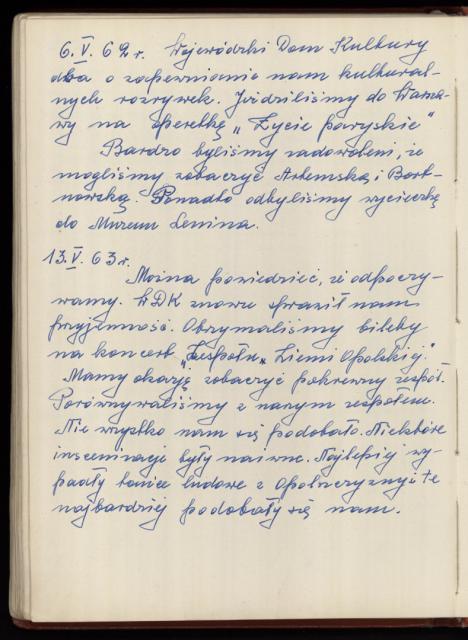 6.V.62 r. Wojewódzki Dom Kultury
dba o zapewnienie nam kultural-
nych rozrywek. Jeździliśmy do Warsza-
wy na operetkę „Życie paryskie"
Bardzo byliśmy zadowoleni, że
mogliśmy zobaczyć Artemską i Bort-
nowską. Ponadto odbyliśmy wycieczkę
do Muzeum Lenina.
13.V.63 r.
Można powiedzieć, że odpoczy-
wamy. WDK znowu sprawił nam
przyjemność. Otrzymaliśmy bilety
na koncert „Zespołu „Ziemi Opolskiej."
Mamy okazję zobaczyć pokrewny zespół.
Porównywaliśmy z naszym zespołem.
Nie wszystko nam się podobało. Niektóre
inscenizacje były naiwne. Najlepiej wy-
padły tańce ludowe z Opolszczyzny i te
najbardziej podobały się nam.